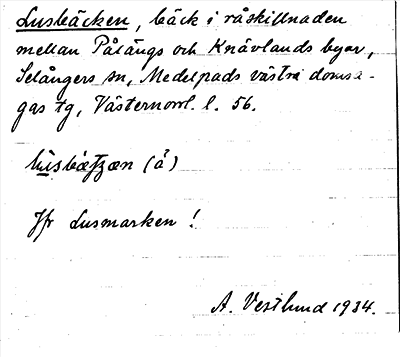 Lusbäcken, bäck i råskillnaden
mellan Pålängs och Knävlands byar,
Selångers sn, Medelpads västra domsa-
gas tg, Västernorrl. l. 56.
(å)
Jfr Lusmarken!
A. Vestlund 1934.